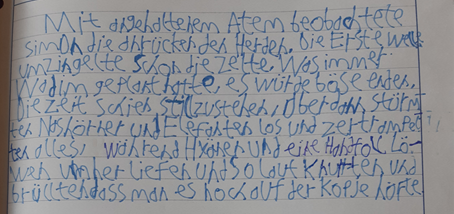 Mit angehaltenem Atem beobachtete
simOn die anrückenden Herden. Die Erste welle
umzingelte schon die zelte. Was immer
Wadim geplant hatte, es würde böse enden.
Die zeit schien stillzustehen, aber dann stürm
ten Nashörner und Elefanten los und zertrampel
ten alles, während Hyänen und eine Handfoll Lö-
wen umher liefen und so laut knurrten und
brüllten dass man es noch auf der Kopje hörte